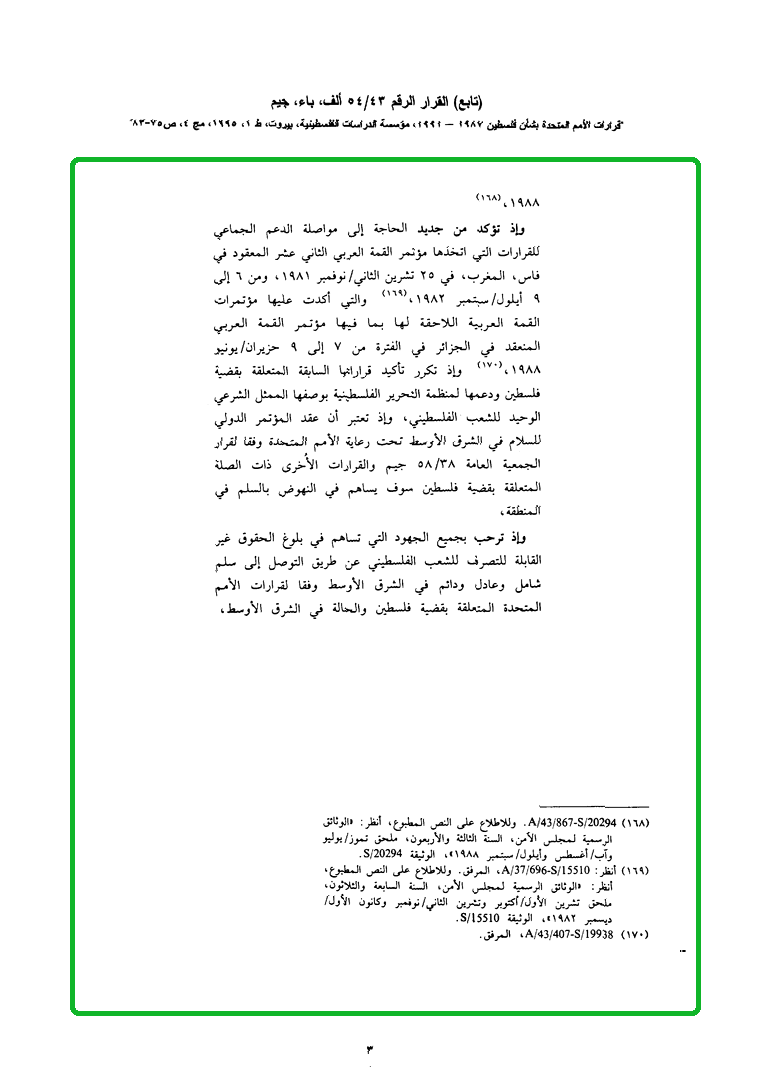 (تابع) القرار الرقم ٥٤/٤٣ ألف، باء، جيم
"قرارات الأمم المتحدة بشأن فلسطين ١٩٨٧ – ١٩٩١، مؤسسة الدراسات الفلسطينية، بيروت، ط ١، ١٩٩٥، مج ٤، ص٧٥-٨٣"
١٩٨٨،(١٦٨)
وإذ تؤكد من جديد الحاجة إلى مواصلة الدعم الجماعي
للقرارات التي اتخذها مؤتمر القمة العربي الثاني عشر المعقود في
فاس، المغرب، في ٢٥ تشرين الثاني/نوفمبر ١٩٨١، ومن ٦ إلى
٩ أيلول/سبتمبر ١٩٨٢،(١٦٩) والتي أكدت عليها مؤتمرات
القمة العربية اللاحقة لها بما فيها مؤتمر القمة العربي
المنعقد في الجزائر في الفترة من ٧ إلى ٩ حزيران/يونيو
١٩٨٨،(١٧٠) وإذ تكرر تأكيد قراراتها السابقة المتعلقة بقضية
فلسطين ودعمها لمنظمة التحرير الفلسطينية بوصفها الممثل الشرعي
الوحيد للشعب الفلسطيني، وإذ تعتبر أن عقد المؤتمر الدولي
للسلام في الشرق الأوسط تحت رعاية الأمم المتحدة وفقا لقرار
الجمعية العامة ٥٨/٣٨ جيم والقرارات الأخرى ذات الصلة
المتعلقة بقضية فلسطين سوف يساهم في النهوض بالسلم في
المنطقة،
وإذ ترحب بجميع الجهود التي تساهم في بلوغ الحقوق غير
القابلة للتصرف للشعب الفلسطيني عن طريق التوصل إلى سلم
شامل وعادل ودائم في الشرق الأوسط وفقا لقرارات الأمم
المتحدة المتعلقة بقضية فلسطين والحالة في الشرق الأوسط،
(١٦٨) A/43/867-S/20294. وللاطلاع على النص المطبوع، أنظر: «الوثائق
الرسمية لمجلس الأمن، السنة الثالثة والأربعون، ملحق تموز/يوليو
وآب/أغسطس وأيلول/سبتمبر ١٩٨٨»، الوثيقة S/20294.
(١٦٩) أنظر: A/37/696-S/15510، المرفق. وللاطلاع على النص المطبوع،
أنظر: «الوثائق الرسمية لمجلس الأمن، السنة السابعة والثلاثون،
ملحق تشرين الأول/أكتوبر وتشرين الثاني/نوفمبر وكانون الأول/
ديسمبر ١٩٨٢»، الوثيقة S/15510.
(١٧٠) A/43/407-S/19938، المرفق.
٣